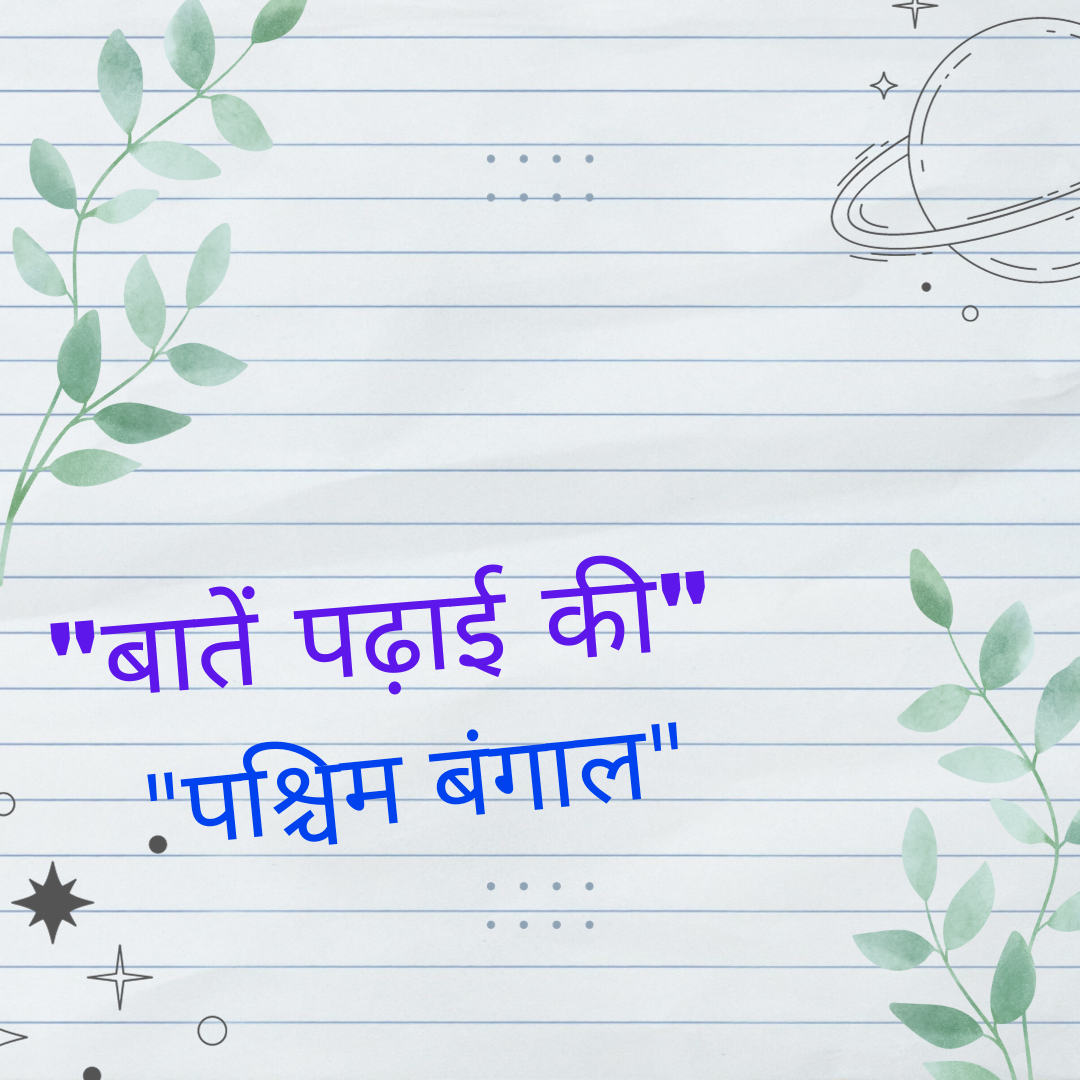 "बातें पढ़ाई की"
"पश्चिम बंगाल"